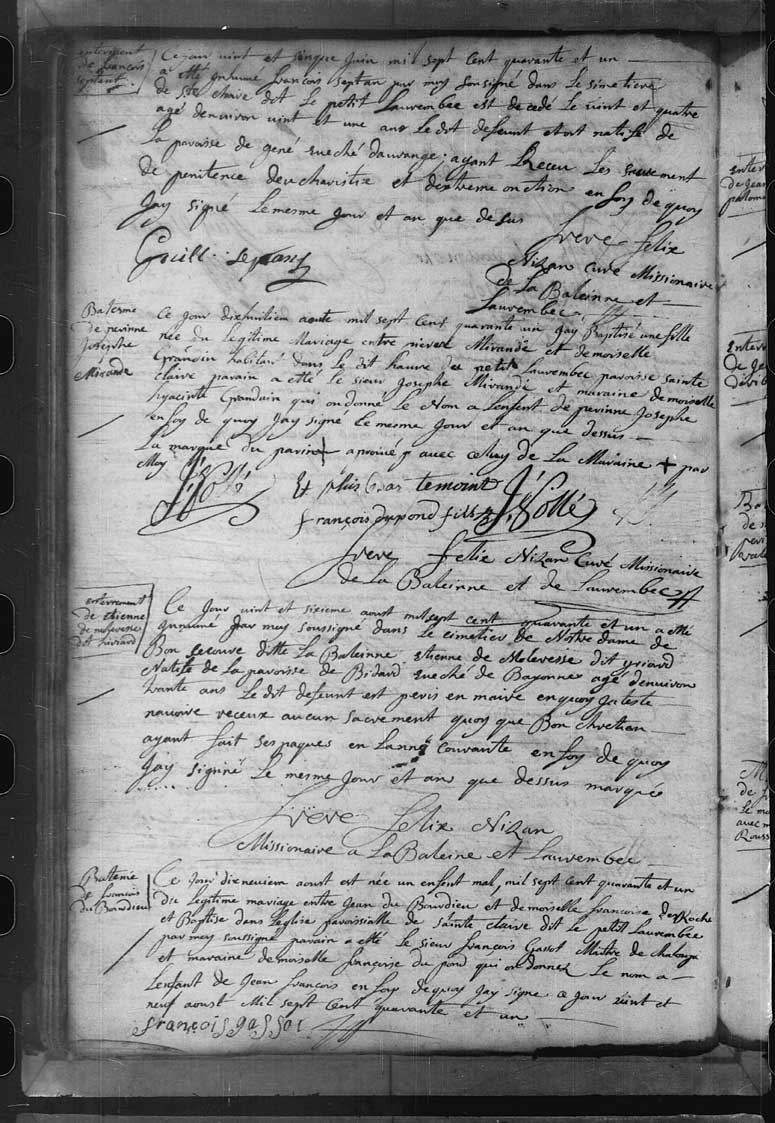 enterrement
de francois
septant
Ce jour vint et sinque Juin mil sept Cent quarante et un
a etté ynhumé francois septan par moy sousigné dans le simetiere
de Ste claire dit Le petit Laurembec est decedé Le vint et quatre
agé denviron vint et une ans Le dit defeunt etoit natife de
La paroisse de gené eveché dauvange; ayant Receu Les sacrement
de penitence deucharistie et dextreme onction en foy de quoy
Jay signé Le mesme Jour et an que desus
frere felix
Guill.
Nizan Curé Missionaire
de La Baleinne et
Laurembec
Bateme
de perinne
Josephe
Mirande
Ce Jour dixhuitien aoute mil sept Cent quarante un Jay Baptisé une fille
née du Legitime Mariage entre pierre Mirande et demoiselle
Grandin habitant dans Le dit havre du petit Laurembec paroisse sainte
claire parain a etté Le sieur Josephe Mirande et maraine demoiselle
hyacinte Grandain qui on donné Le Nom a Lenfent de perinne Josephe
en foy de quoy Jay signé Le mesme Jour et an que dessus
La marque du parin + aprouvé avec celuy de La Maraine + par
Moy
& plus bas temoint
françois dupond fills
frere felix Nizan Curé Missionaire
de La Baleinne et de Laurembec
enterrement
de etienne
de moleresse
dit
Ce Jour vint et sixieme aoust mil sept cent quarante et un a etté
ynhumé par moy soussigné dans Le cimetier de Nostre dame de
Bon secoure ditte La Baleinne etienne de Moleresse dit
Natife de La paroisse de Bidard eveché de Bayonne agé denviron
trante ans Le dit defeunt est peris en maire en quoy Jateste
navoire receux aucun sacrement quoy que Bon chretien
ayant fait ses paques en Lanné Courante en foy de quoy
Jay signné Le mesme Jour et an que dessus marqué
frere felix Nizan
Missionaire a La Baleine et Laurembec
Bateme
de francois
du Bourdieu
Ce Jour dixneuvien aoust est née un enfent mal, mil sept Cent quarante et un
du Legitime mariage entre Jean du Bourdieu et demoiselle francoise deRoche
et Baptise dans Leglise paroissialle de sainte claire dit Le petit Laurembec
par moy soussigné parain a etté Le sieur françois Gassot Maitre de
et maraine demoiselle francoise du pond qui on donner Le nom a
Lenfant de Jean francois en foy de quoy Jay signe ce Jour vint et
neuf aoust Mil sept Cent quarante et un
françois gassot